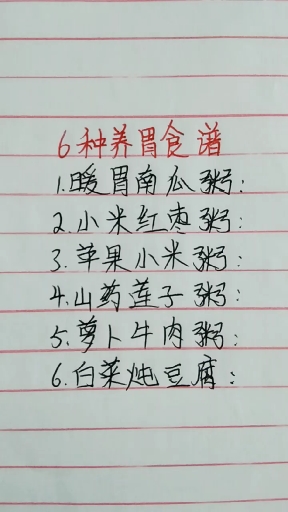 6种养胃食谱
1.暖胃南瓜粥:
2.小米红枣粥:
3.苹果小米粥:
4.山药莲子粥:
5.萝卜牛肉粥:
6.白菜炖豆腐: